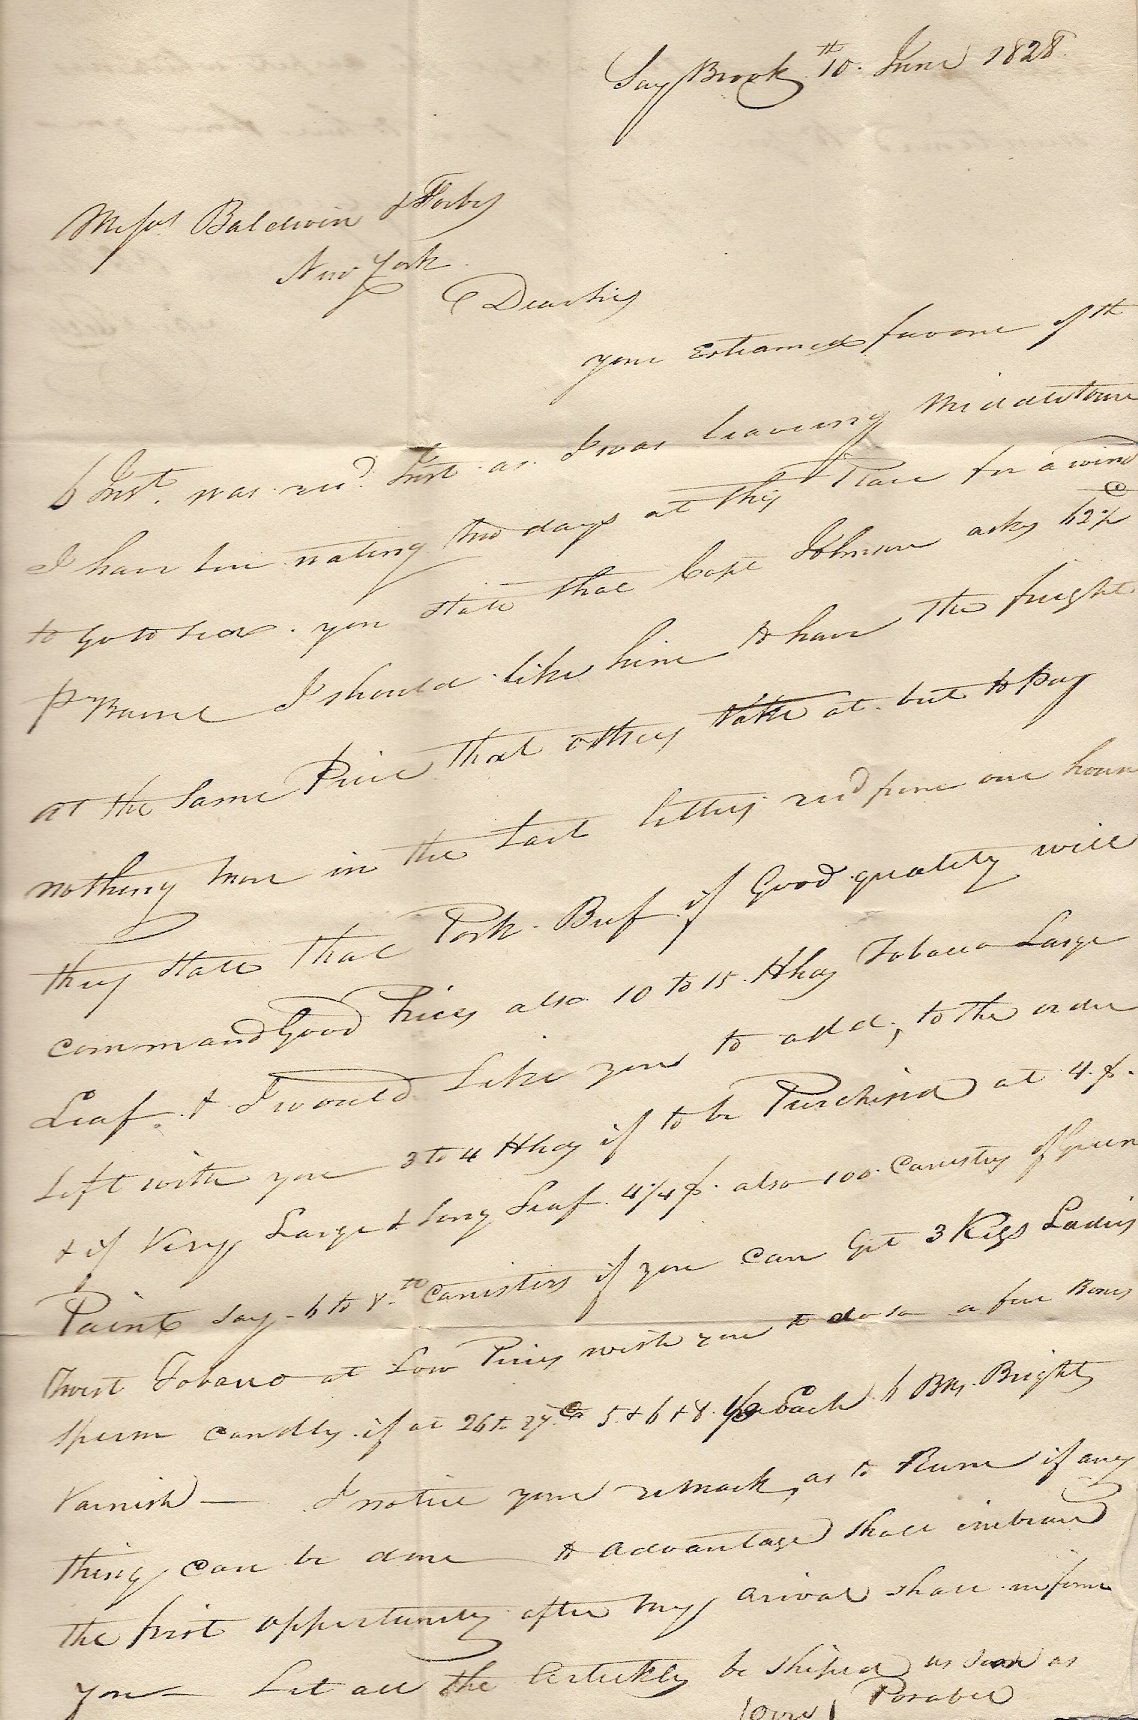 Say Brook 10th June 1828
Messrs Baldwin & Forbes
New York
Dear Sirs
your Esteamed favour of th
6 Inst. was recd Just as I was leaveing Middletown
I have been wating two days at this Place for a wind
to go to Sea. you state that Capt Johnson asks 62½ c
pr Barrel I should like him to have the freight
at the Same Price that others take at. but to pay
nothing more in the Last letters recd from our house
they state that Pork. Beef if Good quality will
command Good Prices also 10 to 15 Hhds Tobacco Large
Leaf. & I would Like you to add, to the order
Left with you 3 to 4 Hhds if to be Purchised at 4 $.
& if Very Large & long Leaf 4¼ $. also 100 Canistes of Green
Paint say 6 to 8 lb Canisters if you can Get 3 Kegs Ladies
twist Tobacco at Low Prices wish you to do so a few Boxes
Sperm Candles if at 26 to 27 Cts 5 & 6 & 8 Each 6 Bbs. Bright
Varnish — I notice your remark, as to Rum if any
thing can be done to advantage shall imbrace
the first oppertunety after my arival shall inform
you — Let all the Artickles be Shiped as soon as
(Over) Posabel